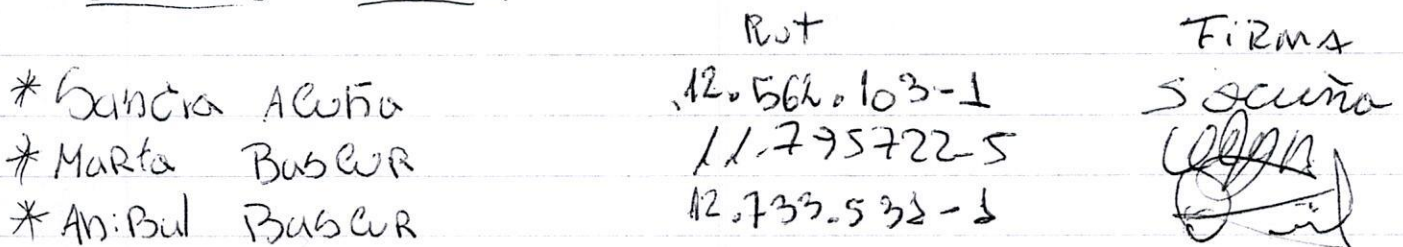 Rut Firma
* Sandra Acuña 12.564.103-1 S Acuña
* Marta Bascur 11.795722-5
* Anibal Bascur 12.733.531-1